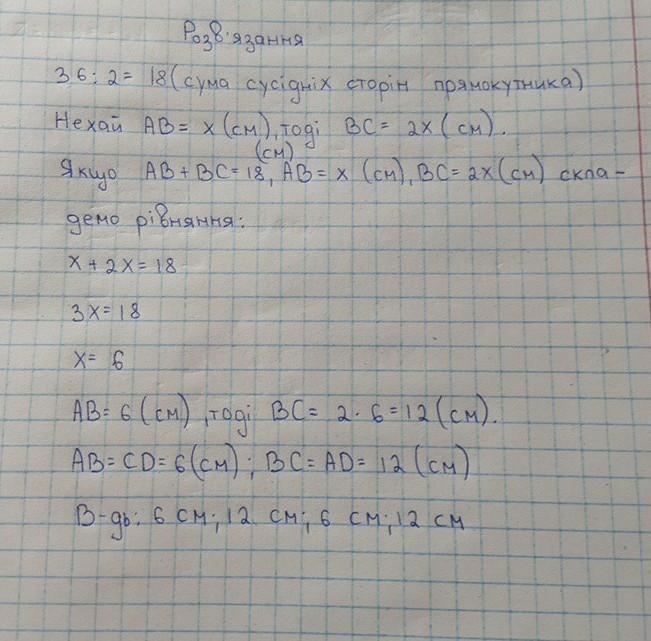 Розв'язання
36:2= 18(сума сусідніх сторін прямокутника)
Нехай AB= x(см), тоді BC= 2x(см).
(см)
Якщо AB+BC=18, AB= x (см), BC=2x(см) скла-
демо рівняння:
x+2x=18
3x=18
x= 6
AB=6(см), тоді BC= 2·6=12(см).
AB=CD=6(см); BC=AD= 12(см)
В-дь: 6 см; 12 см; 6 см; 12 см